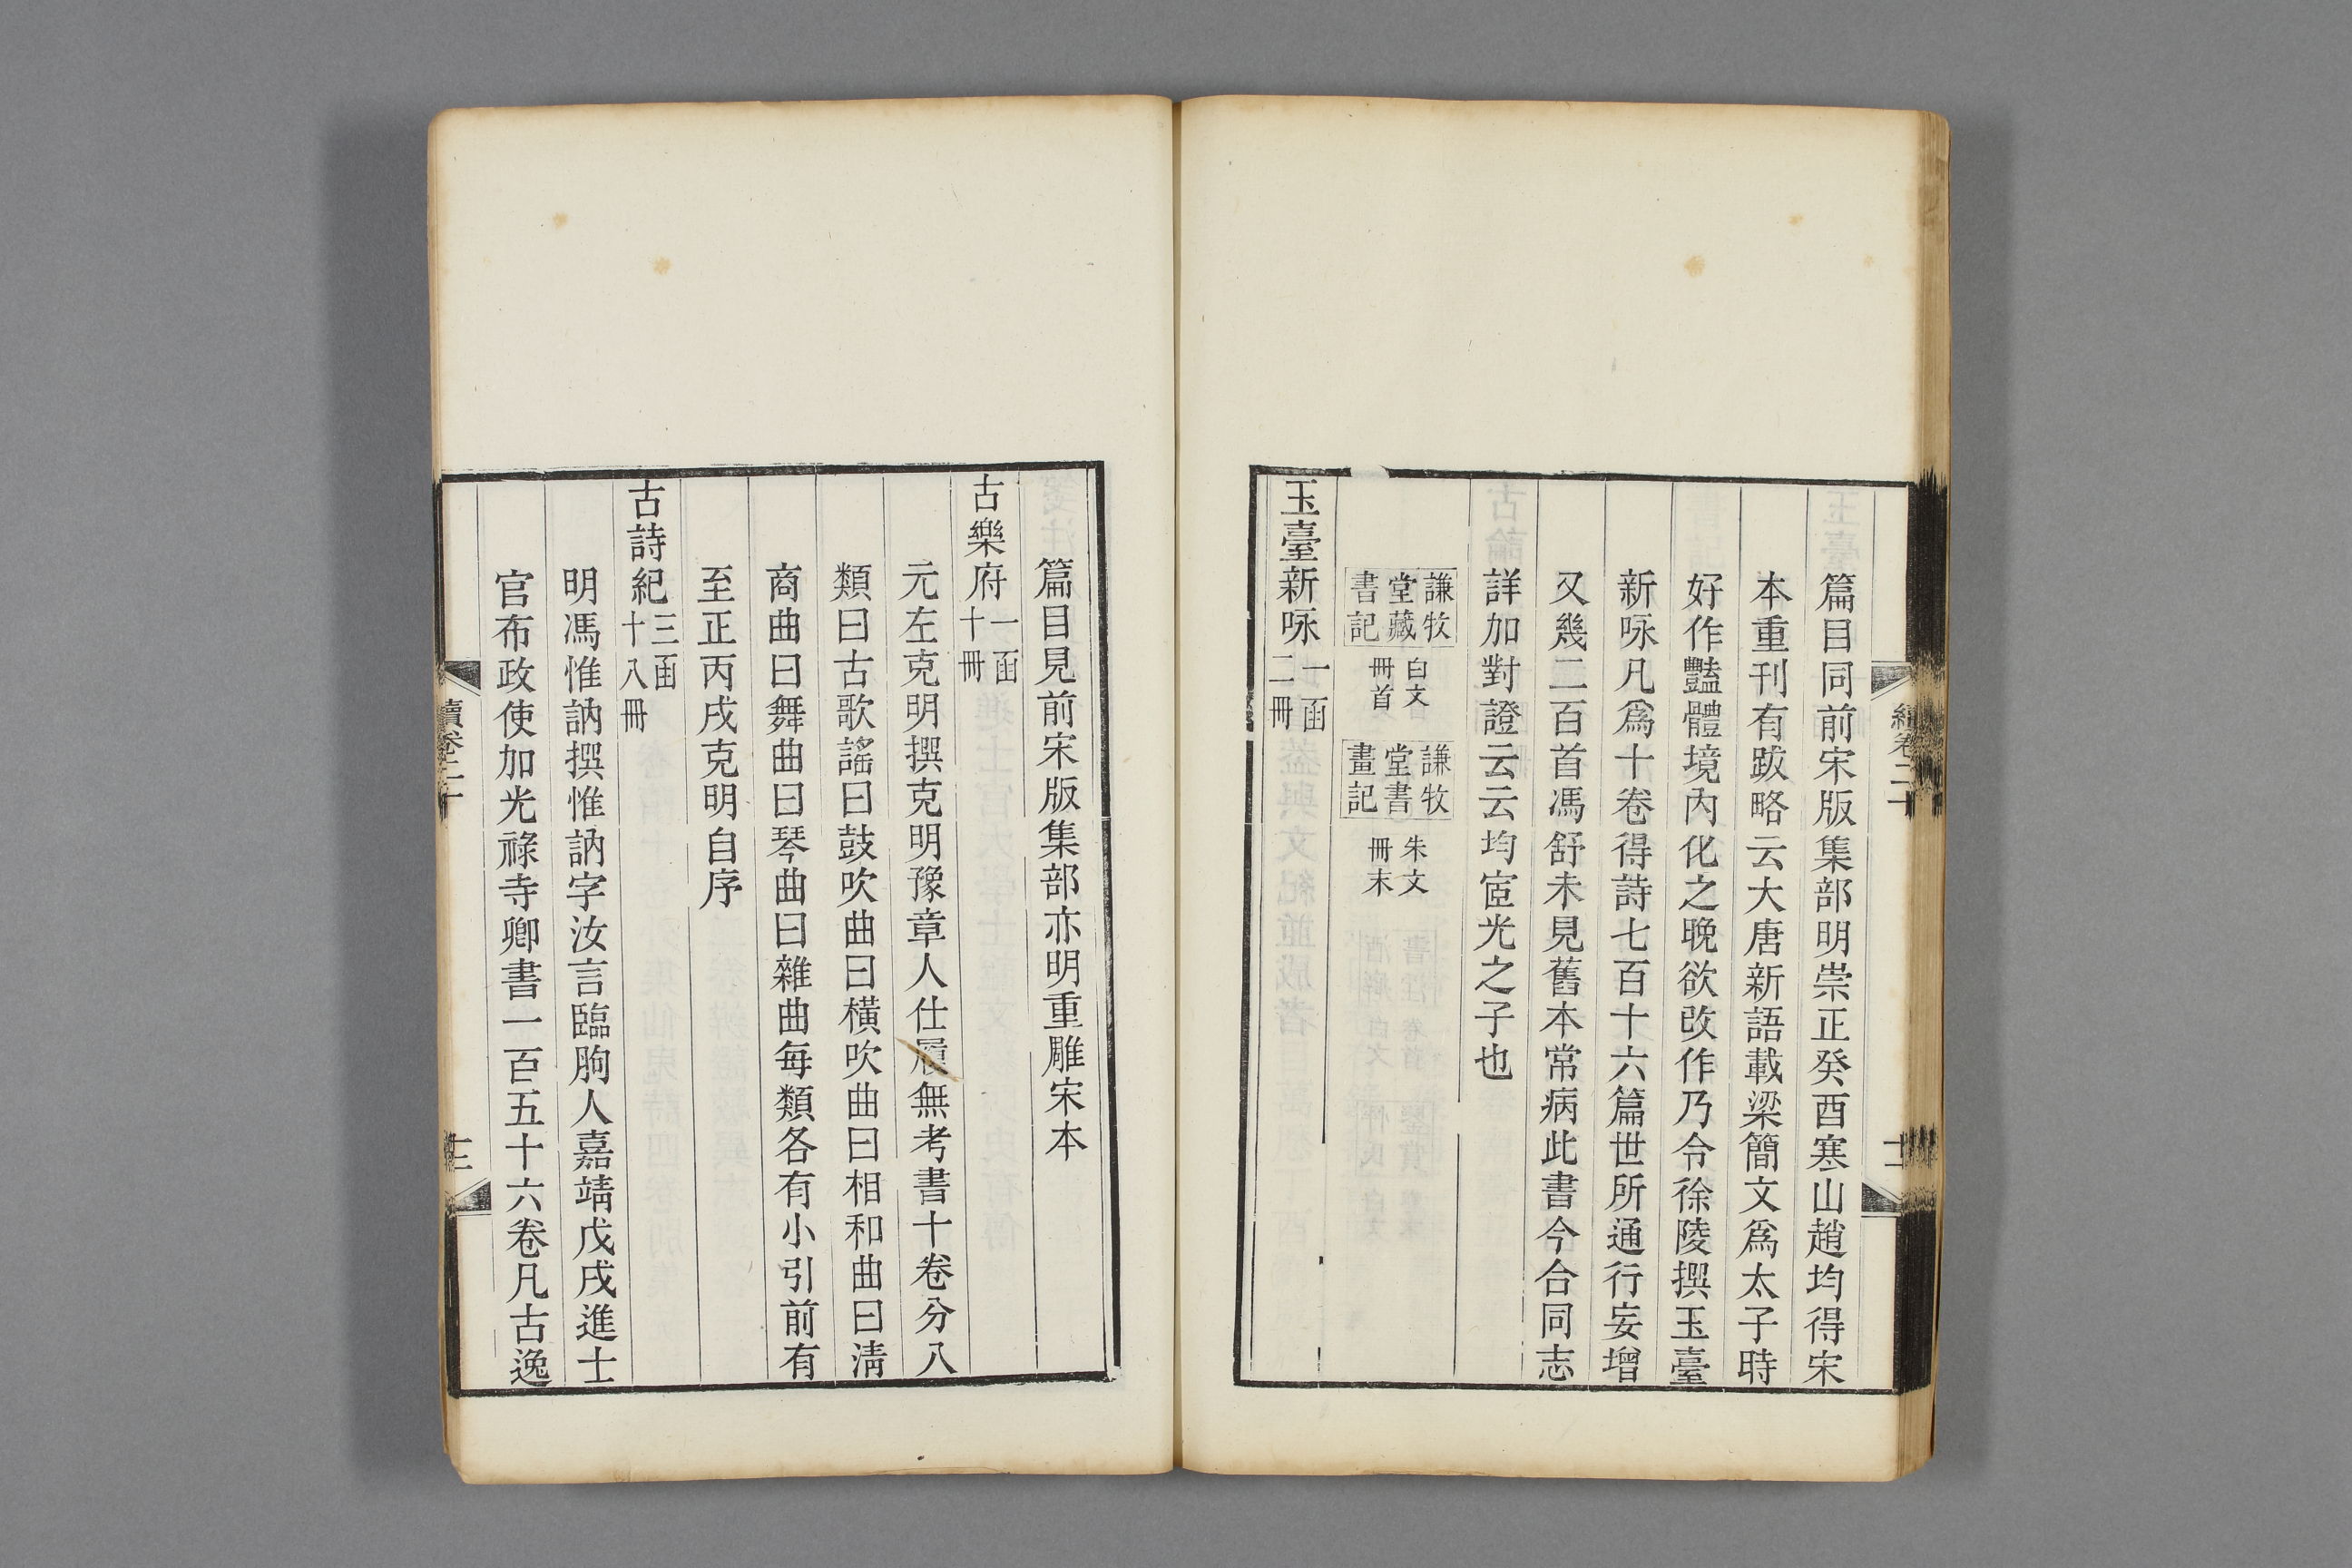 篇目同前宋版集部明崇正癸酉寒山趙均得宋
本重刊有跋略云大唐新語載梁簡文爲太子時
好作豔體境內化之晚欲改作乃令徐陵撰玉臺
新咏凡爲十卷得詩七百十六篇世所通行妄增
又幾二百首馮舒未見舊本常病此書今合同志
詳加對證云云均宧光之子也
謙牧
堂藏
書記
白文
冊首
謙牧
堂書
畫記
朱文
冊末
玉臺新咏
一函
二冊
篇目見前宋版集部亦明重雕宋本
古樂府
一函
十冊
元左克明撰克明豫章人仕履無考書十卷分八
類曰古歌謠曰鼓吹曲曰橫吹曲曰相和曲曰清
商曲曰舞曲曰琴曲曰雜曲每類各有小引前有
至正丙戌克明自序
古詩紀
三函
十八冊
明馮惟訥撰惟訥字汝言臨朐人嘉靖戊戌進士
官布政使加光祿寺卿書一百五十六卷凡古逸
續卷二十
十三